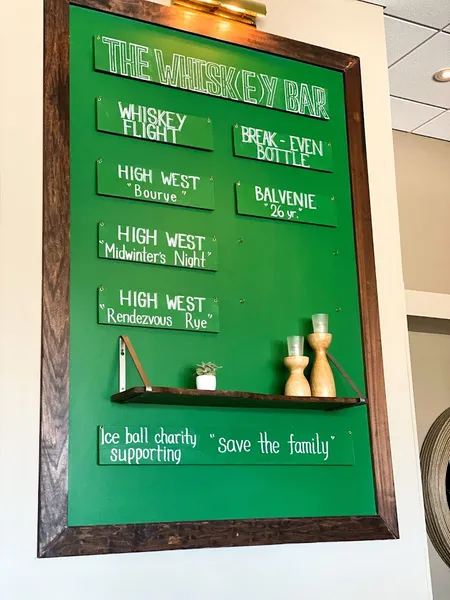 THE WHISKEY BAR
WHISKEY
FLIGHT
HIGH WEST
"Bourye"
HIGH WEST
"Midwinter's Night"
HIGH WEST
"Rendezvous Rye"
BREAK-EVEN
BOTTLE
BALVENIE
"26 yr."
Ice ball charity
supporting
"save the family"